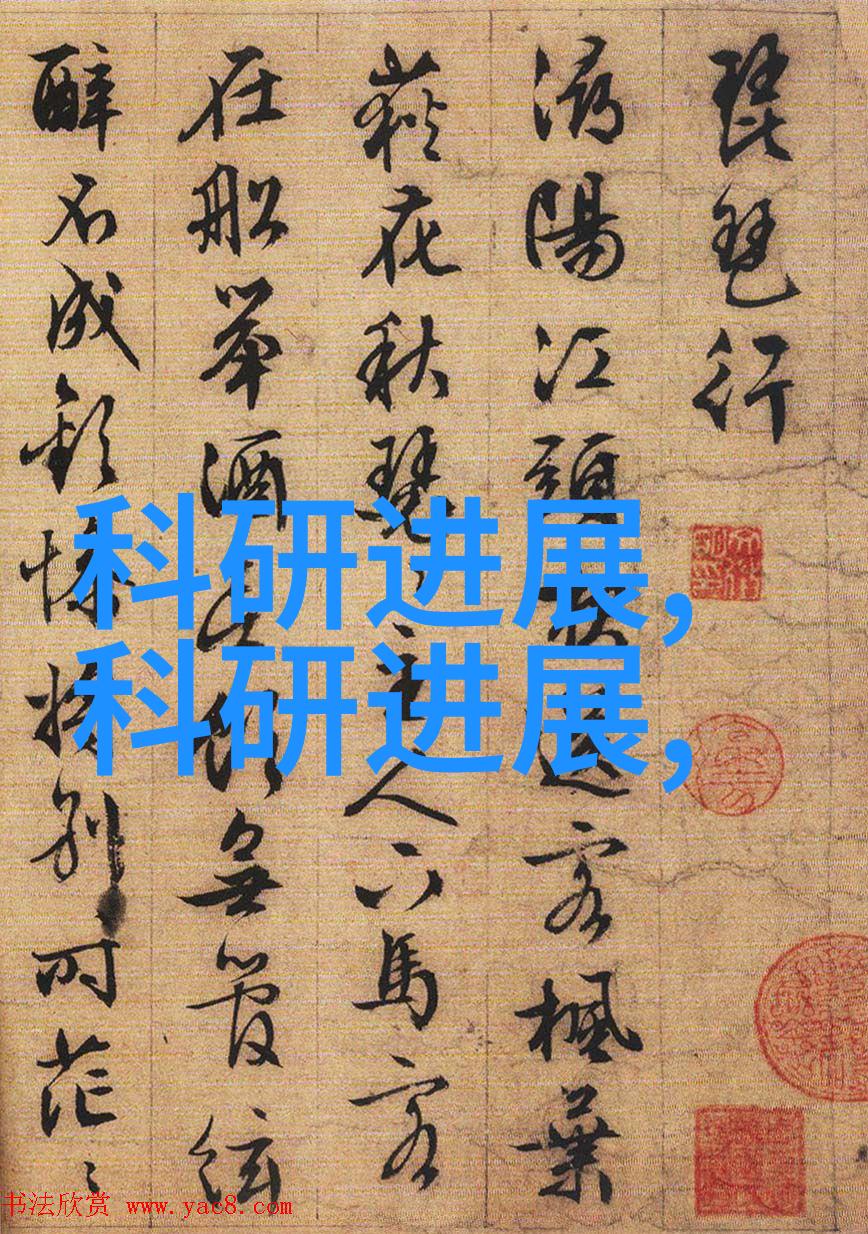 琵琶行
潯陽江頭夜送客楓葉
荻花秋瑟〻主人下馬客
在船舉酒欲飲無管絃
醉不成歡慘將別〻時茫〻
科研进展,
科研进展,
书法欣赏 www.yac8.com